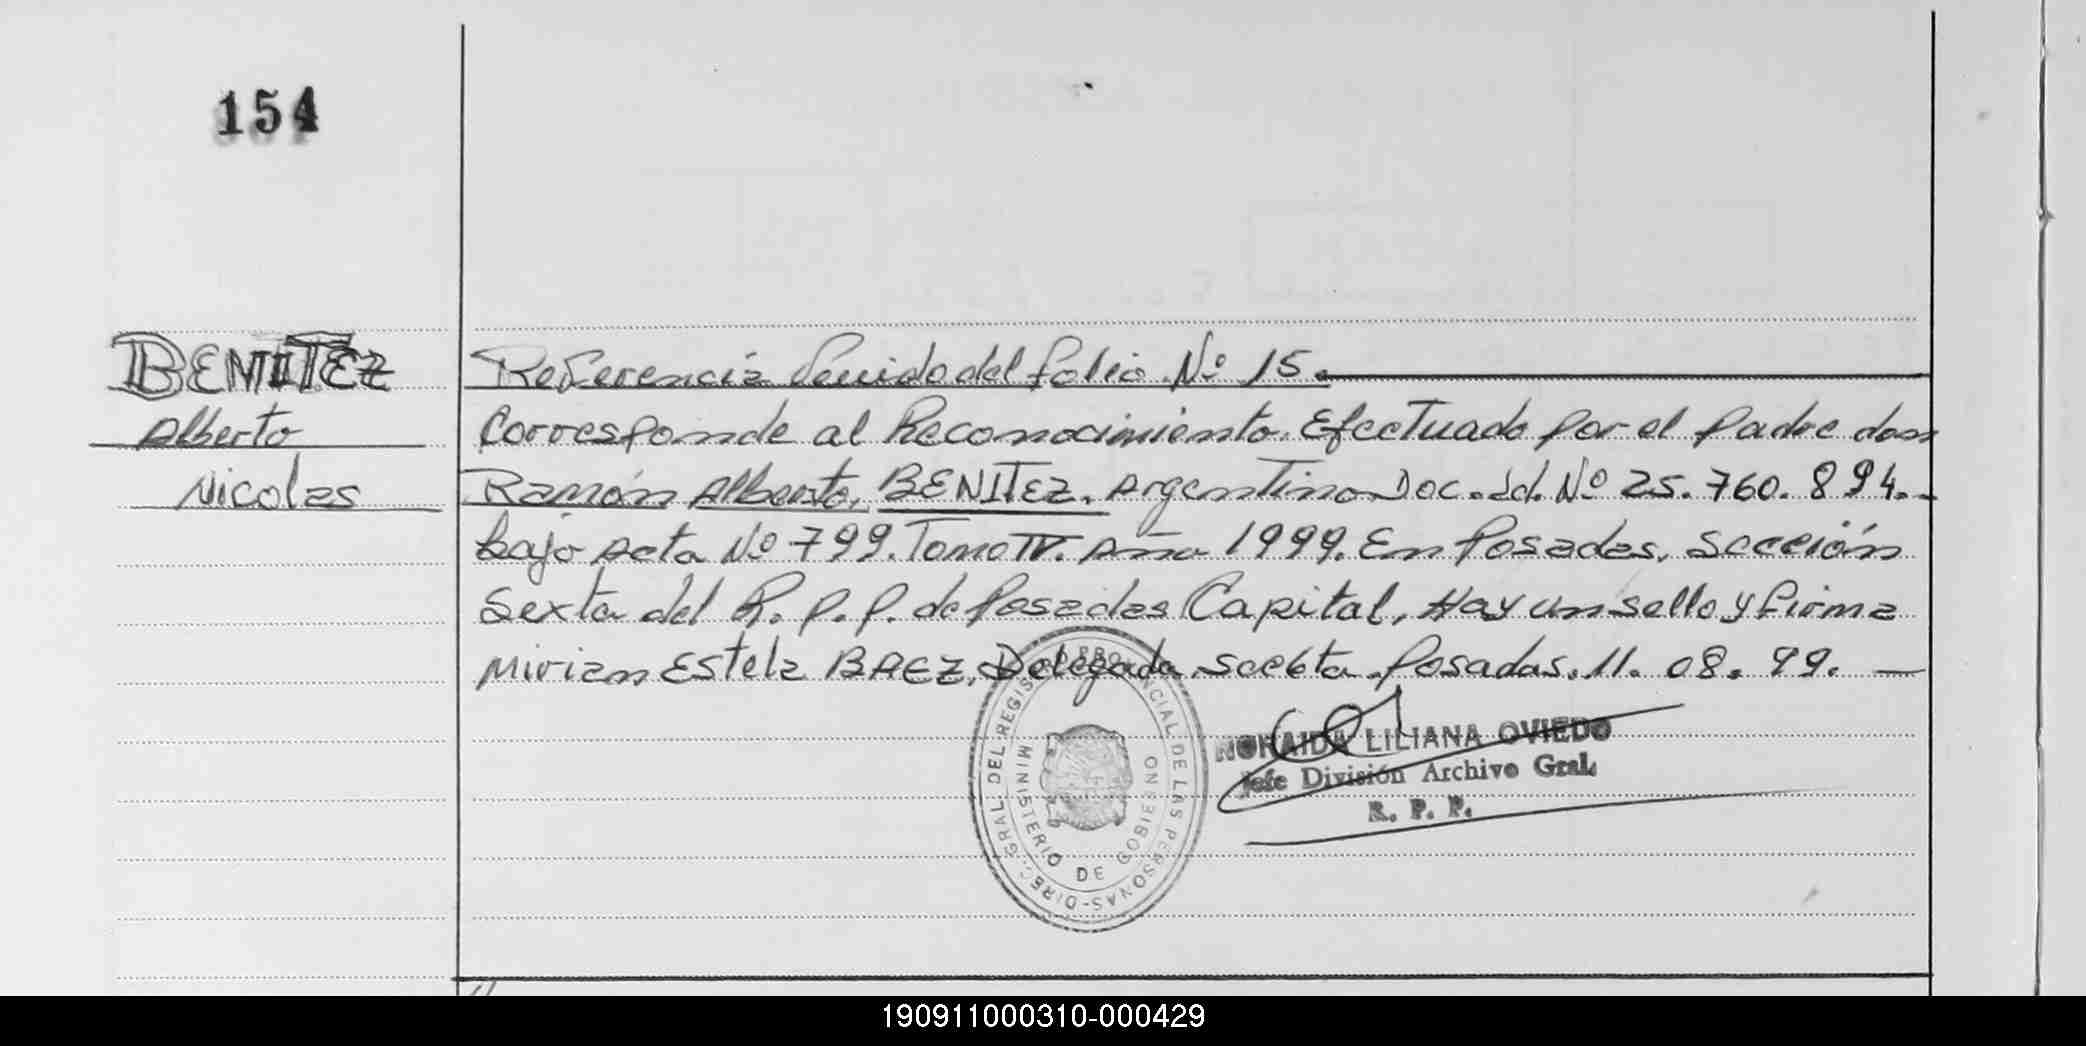 154
BENITEZ
Alberto
Nicolas
Referencia Venido del folio Nº 15.
Corresponde al Reconocimiento. Efectuado por el padre don
Ramón Alberto. BENITEZ. Argentino Doc. Id. Nº 25.760.894.-
bajo Acta Nº 799. Tomo IV. Año 1999. En Posadas. Sección
Sexta del R.P.P. de Posadas Capital, Hay un sello y firma
Mirian Estela BAEZ. Delegada. Posadas. 11. 08. 99. —
DIREC. GRAL. DEL REGISTRO PROVINCIAL DE LAS PERSONAS-
MINISTERIO DE GOBIERNO
NORAIDA LILIANA OVIEDO
Jefe División Archivo Gral.
R. P. P.
190911000310-000429